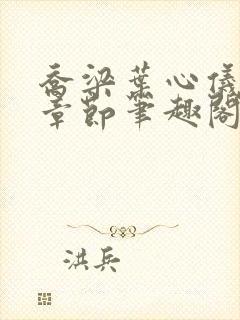 乔梁叶心仪
章节笔趣阁
洪兵